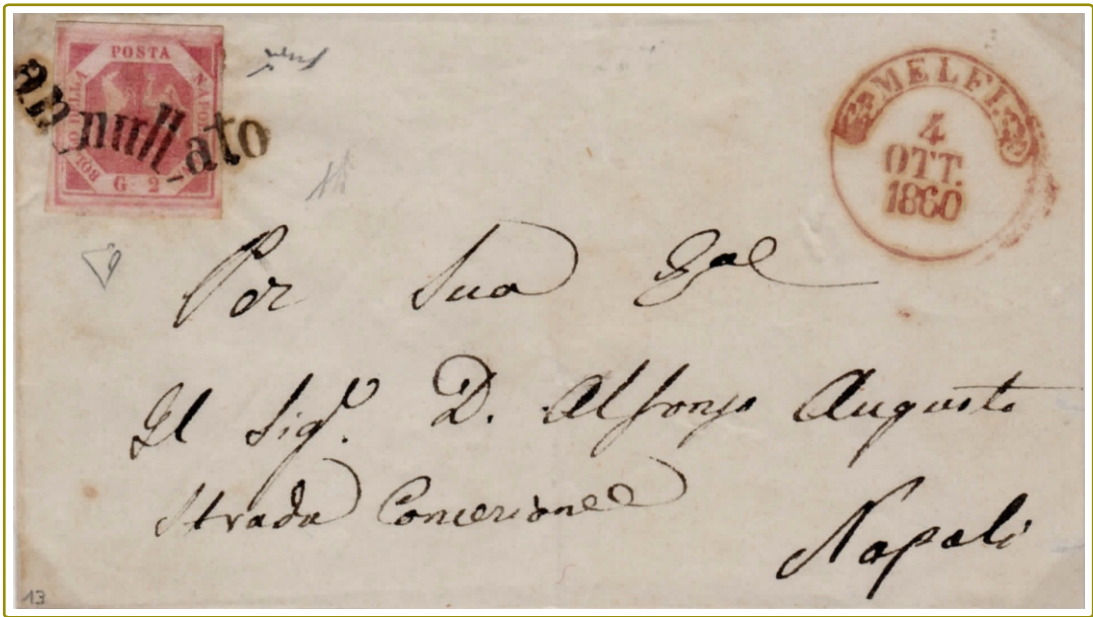 POSTA
NAPOL
BOLLO DELLA
G. 2
annullato
MELFI.
4
OTT.
1860
Per Sua
Il Sig.r D. Alfonso Augusto
Strada Concezione
Napoli
13